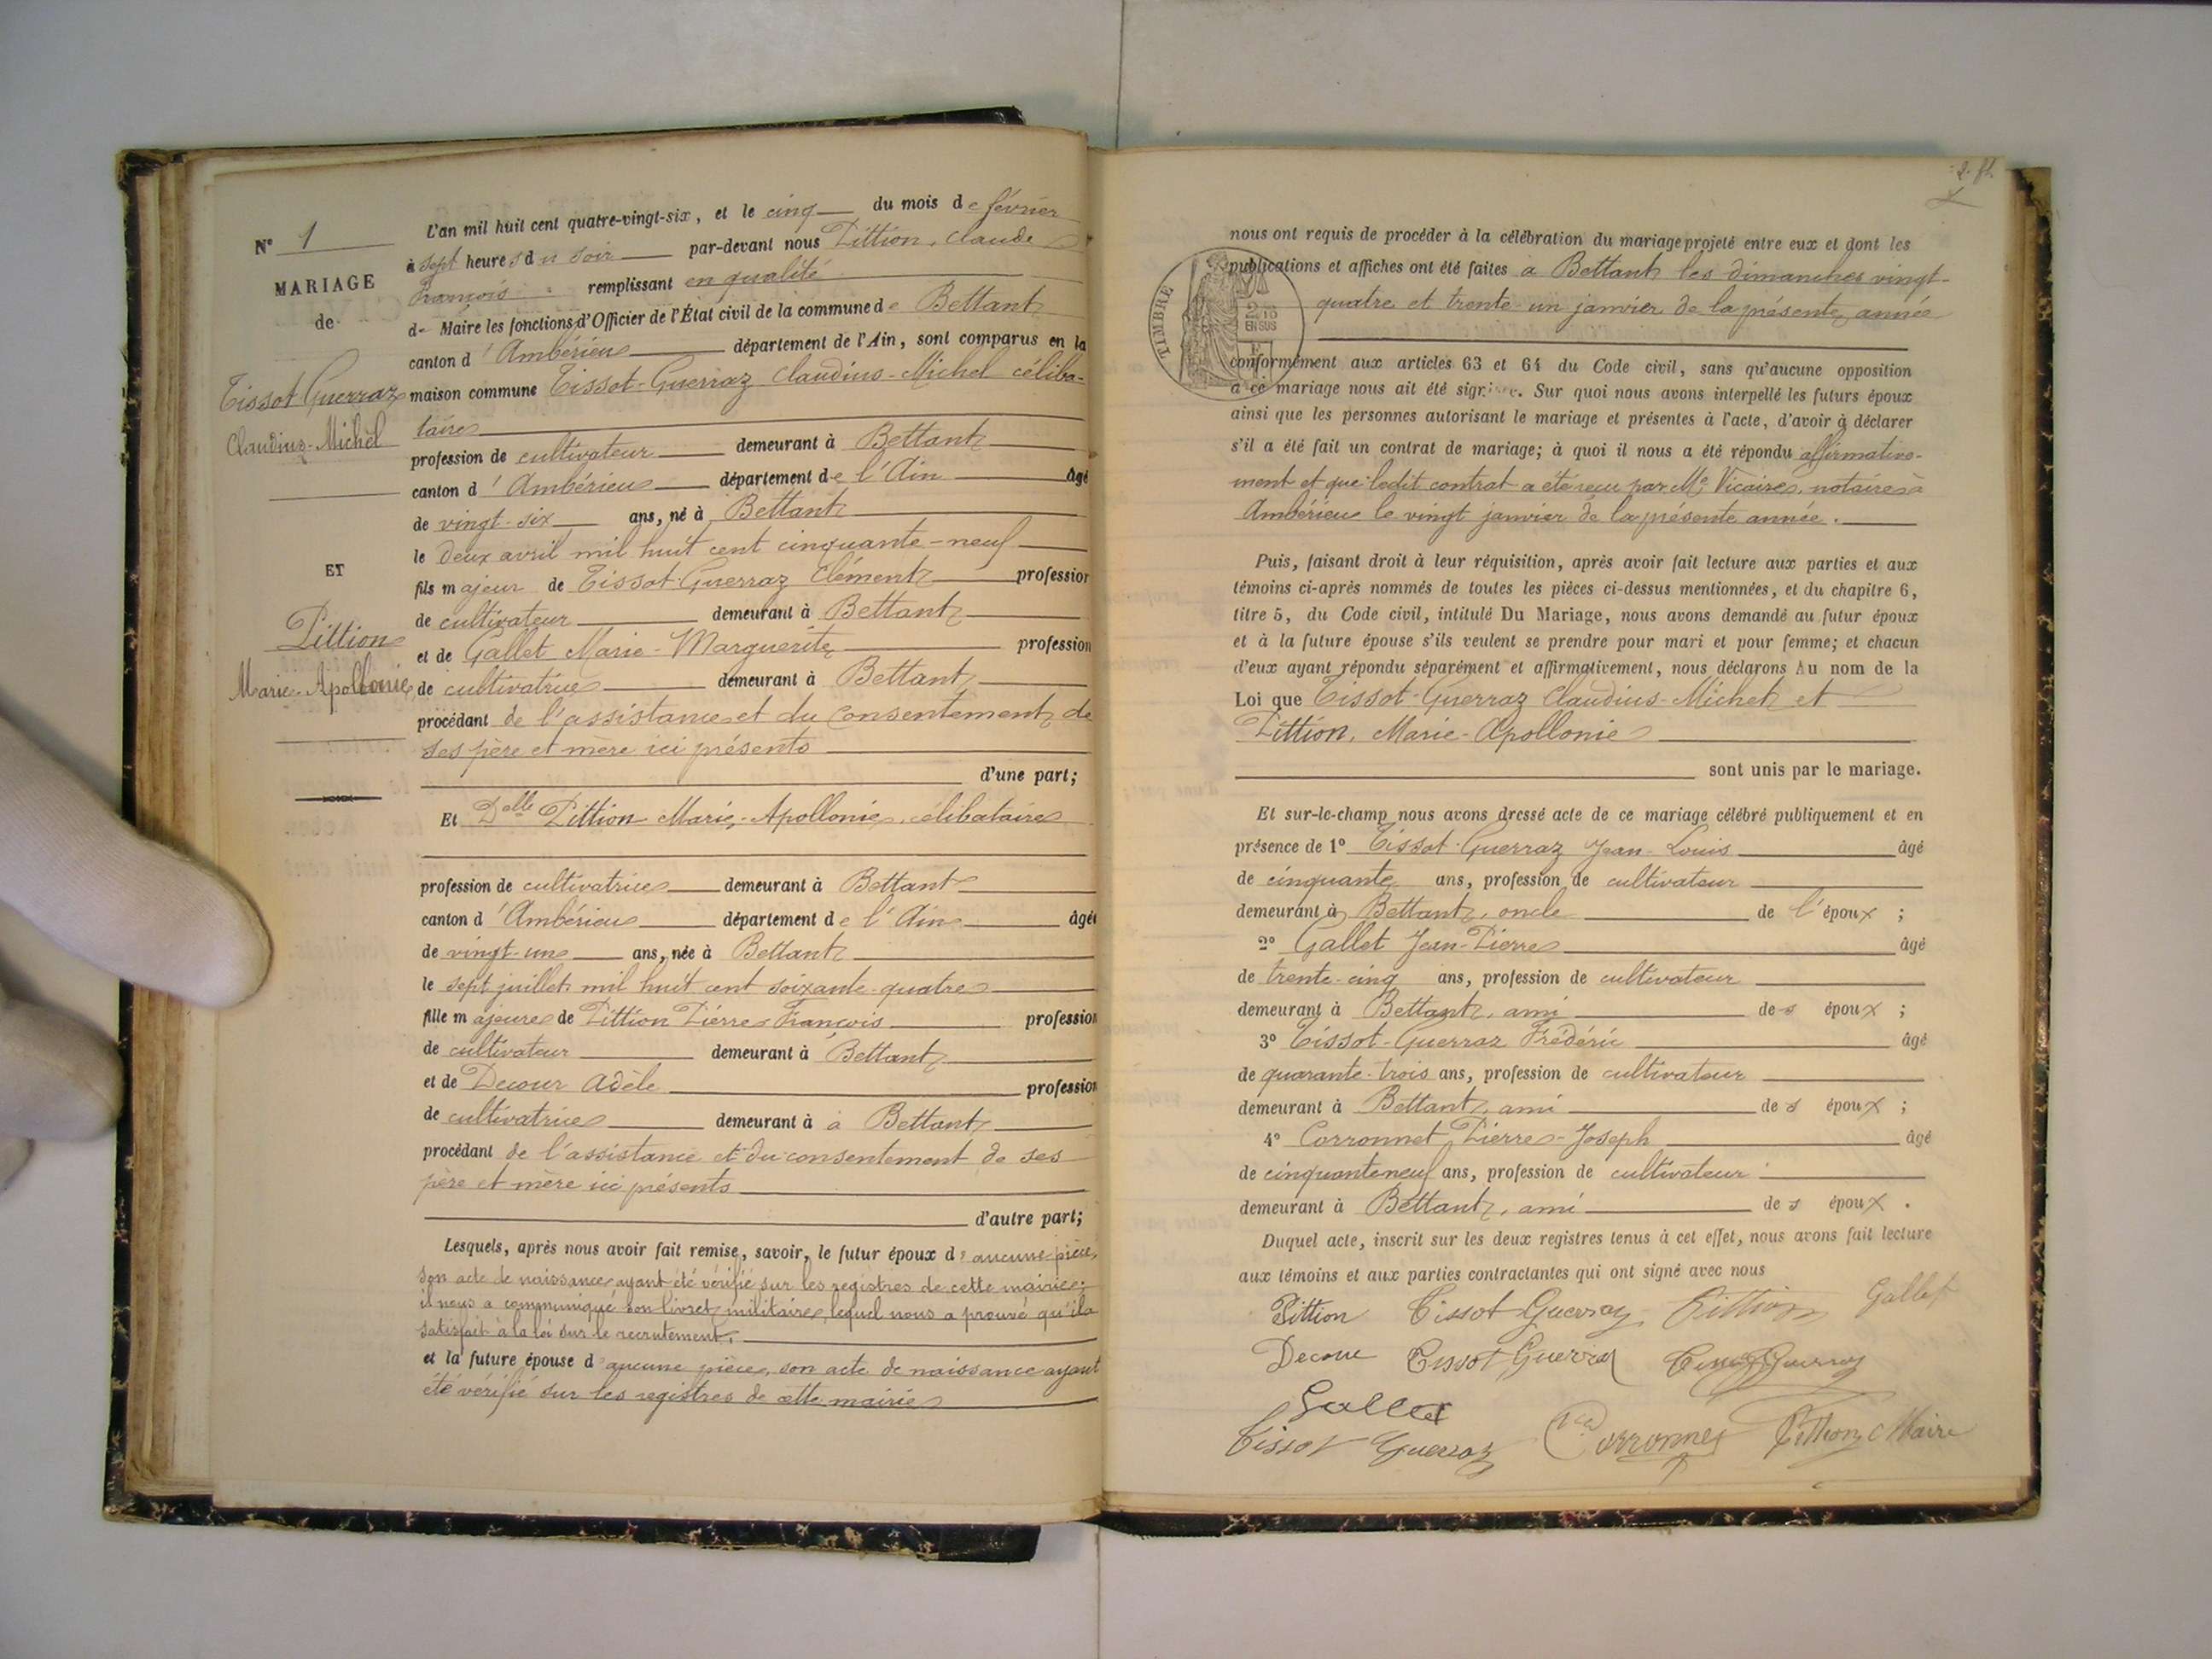 N° 1
MARIAGE
de
Tissot Guerraz
Claudius-Michel
ET
Pittion
Marie-Apollonie
L'an mil huit cent quatre-vingt-six, et le cinq du mois de février
à sept heures du soir par-devant nous Pittion, Claude
François remplissant en qualité
de Maire les fonctions d'Officier de l'État civil de la commune de Bettant
canton d'Ambérieu département de l'Ain, sont comparus en la
maison commune Tissot-Guerraz Claudius-Michel céliba-
taire
profession de cultivateur demeurant à Bettant
canton d'Ambérieu département de l'Ain âgé
de vingt-six ans, né à Bettant
le deux avril mil huit cent cinquante-neuf
fils majeur de Tissot-Guerraz Clément profession
de cultivateur demeurant à Bettant
et de Gallet Marie-Marguerite profession
de cultivatrice demeurant à Bettant
procédant de l'assistance et du consentement de
ses père et mère ici présents
d'une part;
Et Delle Pittion Marie-Apollonie, célibataire
profession de cultivatrice demeurant à Bettant
canton d'Ambérieu département de l'Ain âgée
de vingt-un ans, née à Bettant
le sept juillet mil huit cent soixante-quatre
fille majeure de Pittion Pierre François profession
de cultivateur demeurant à Bettant
et de Decour Adèle profession
de cultivatrice demeurant à à Bettant
procédant de l'assistance et du consentement de ses
père et mère ici présents
d'autre part;
Lesquels, après nous avoir fait remise, savoir, le futur époux d'aucune pièce,
son acte de naissance ayant été vérifié sur les registres de cette mairie;
il nous a communiqué son livret militaire, lequel nous a prouvé qu'il a
satisfait à la loi sur le recrutement.
et la future épouse d'aucune pièce, son acte de naissance ayant
été vérifié sur les registres de cette mairie
nous ont requis de procéder à la célébration du mariage projeté entre eux et dont les
publications et affiches ont été faites à Bettant les dimanches vingt-
quatre et trente-un janvier de la présente année
TIMBRE
2/10
EN SUS
conformément aux articles 63 et 64 du Code civil, sans qu'aucune opposition
à ce mariage nous ait été signifiée. Sur quoi nous avons interpellé les futurs époux
ainsi que les personnes autorisant le mariage et présentes à l'acte, d'avoir à déclarer
s'il a été fait un contrat de mariage; à quoi il nous a été répondu affirmative-
ment et que ledit contrat a été reçu par Me Vicaire, notaire à
Ambérieu le vingt janvier de la présente année.
Puis, faisant droit à leur réquisition, après avoir fait lecture aux parties et aux
témoins ci-après nommés de toutes les pièces ci-dessus mentionnées, et du chapitre 6,
titre 5, du Code civil, intitulé Du Mariage, nous avons demandé au futur époux
et à la future épouse s'ils veulent se prendre pour mari et pour femme; et chacun
d'eux ayant répondu séparément et affirmativement, nous déclarons Au nom de la
Loi que Tissot-Guerraz Claudius-Michel et
Pittion, Marie-Apollonie
sont unis par le mariage.
Et sur-le-champ nous avons dressé acte de ce mariage célébré publiquement et en
présence de 1° Tissot-Guerraz Jean-Louis âgé
de cinquante ans, profession de cultivateur
demeurant à Bettant, oncle de l'époux ;
2° Gallet Jean-Pierre âgé
de trente-cinq ans, profession de cultivateur
demeurant à Bettant, ami des époux ;
3° Tissot-Guerraz Frédéric âgé
de quarante-trois ans, profession de cultivateur
demeurant à Bettant, ami des époux ;
4° Corronnet Pierre-Joseph âgé
de cinquante neuf ans, profession de cultivateur
demeurant à Bettant, ami des époux .
Duquel acte, inscrit sur les deux registres tenus à cet effet, nous avons fait lecture
aux témoins et aux parties contractantes qui ont signé avec nous
Pittion Tissot Guerraz Pittion Gallet
Decour Tissot Guerraz Tissot Guerraz
Gallet
Tissot Guerraz Corronnet Pittion Maire